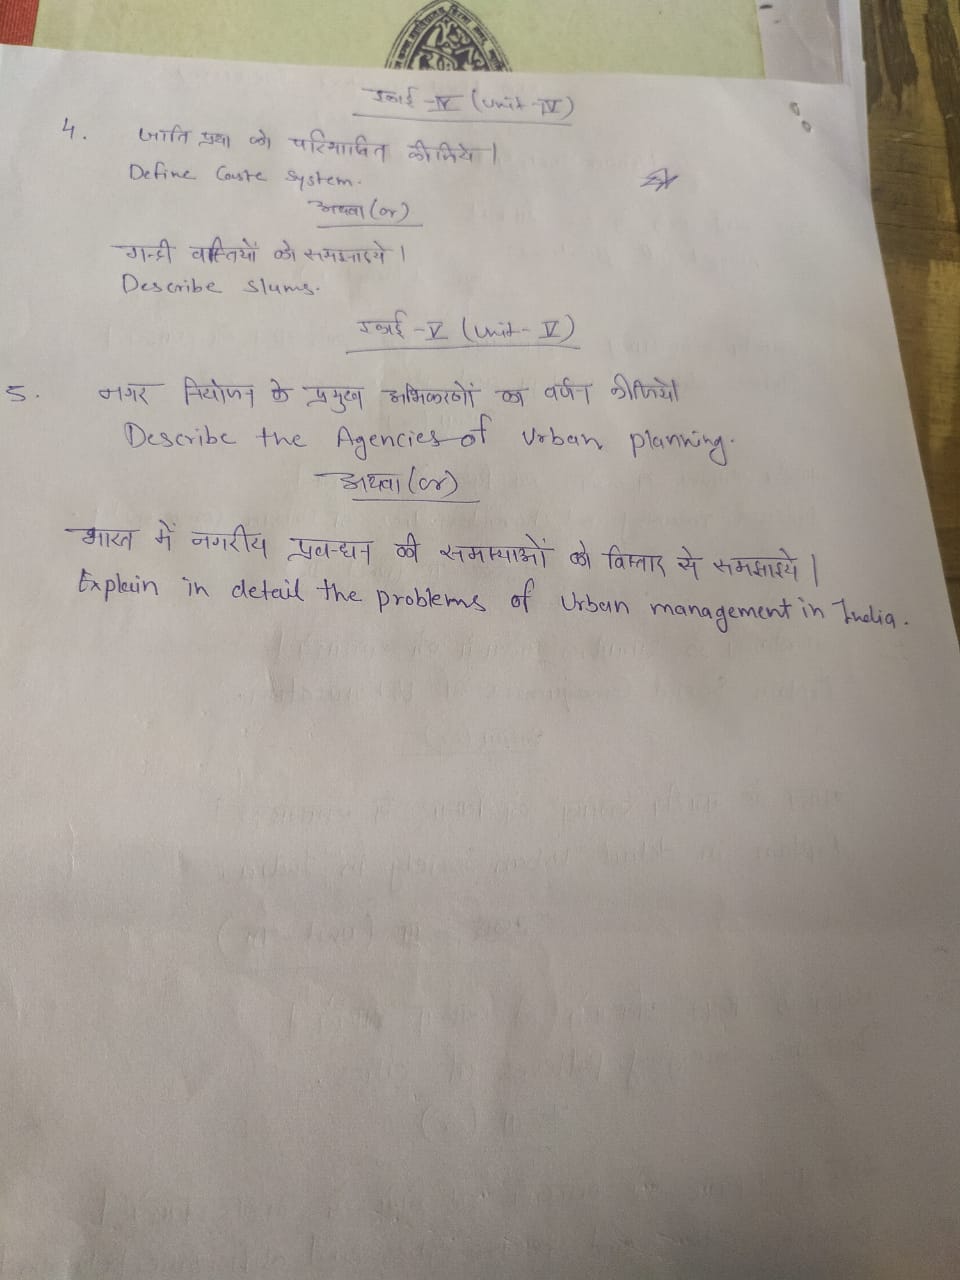 इकाई -IV (unit-IV)
4. जाति प्रथा को परिभाषित कीजिये।
Define Caste System.
अथवा (or)
गन्दी बस्तियों को समझाइये।
Describe Slums.
इकाई -V (Unit- V)
5. नगर नियोजन के प्रमुख अभिकरणों का वर्णन कीजिये।
Describe the Agencies of Urban planning.
अथवा (or)
भारत में नगरीय प्रबन्धन की समस्याओं को विस्तार से समझाइये।
Explain in detail the problems of Urban management in India.